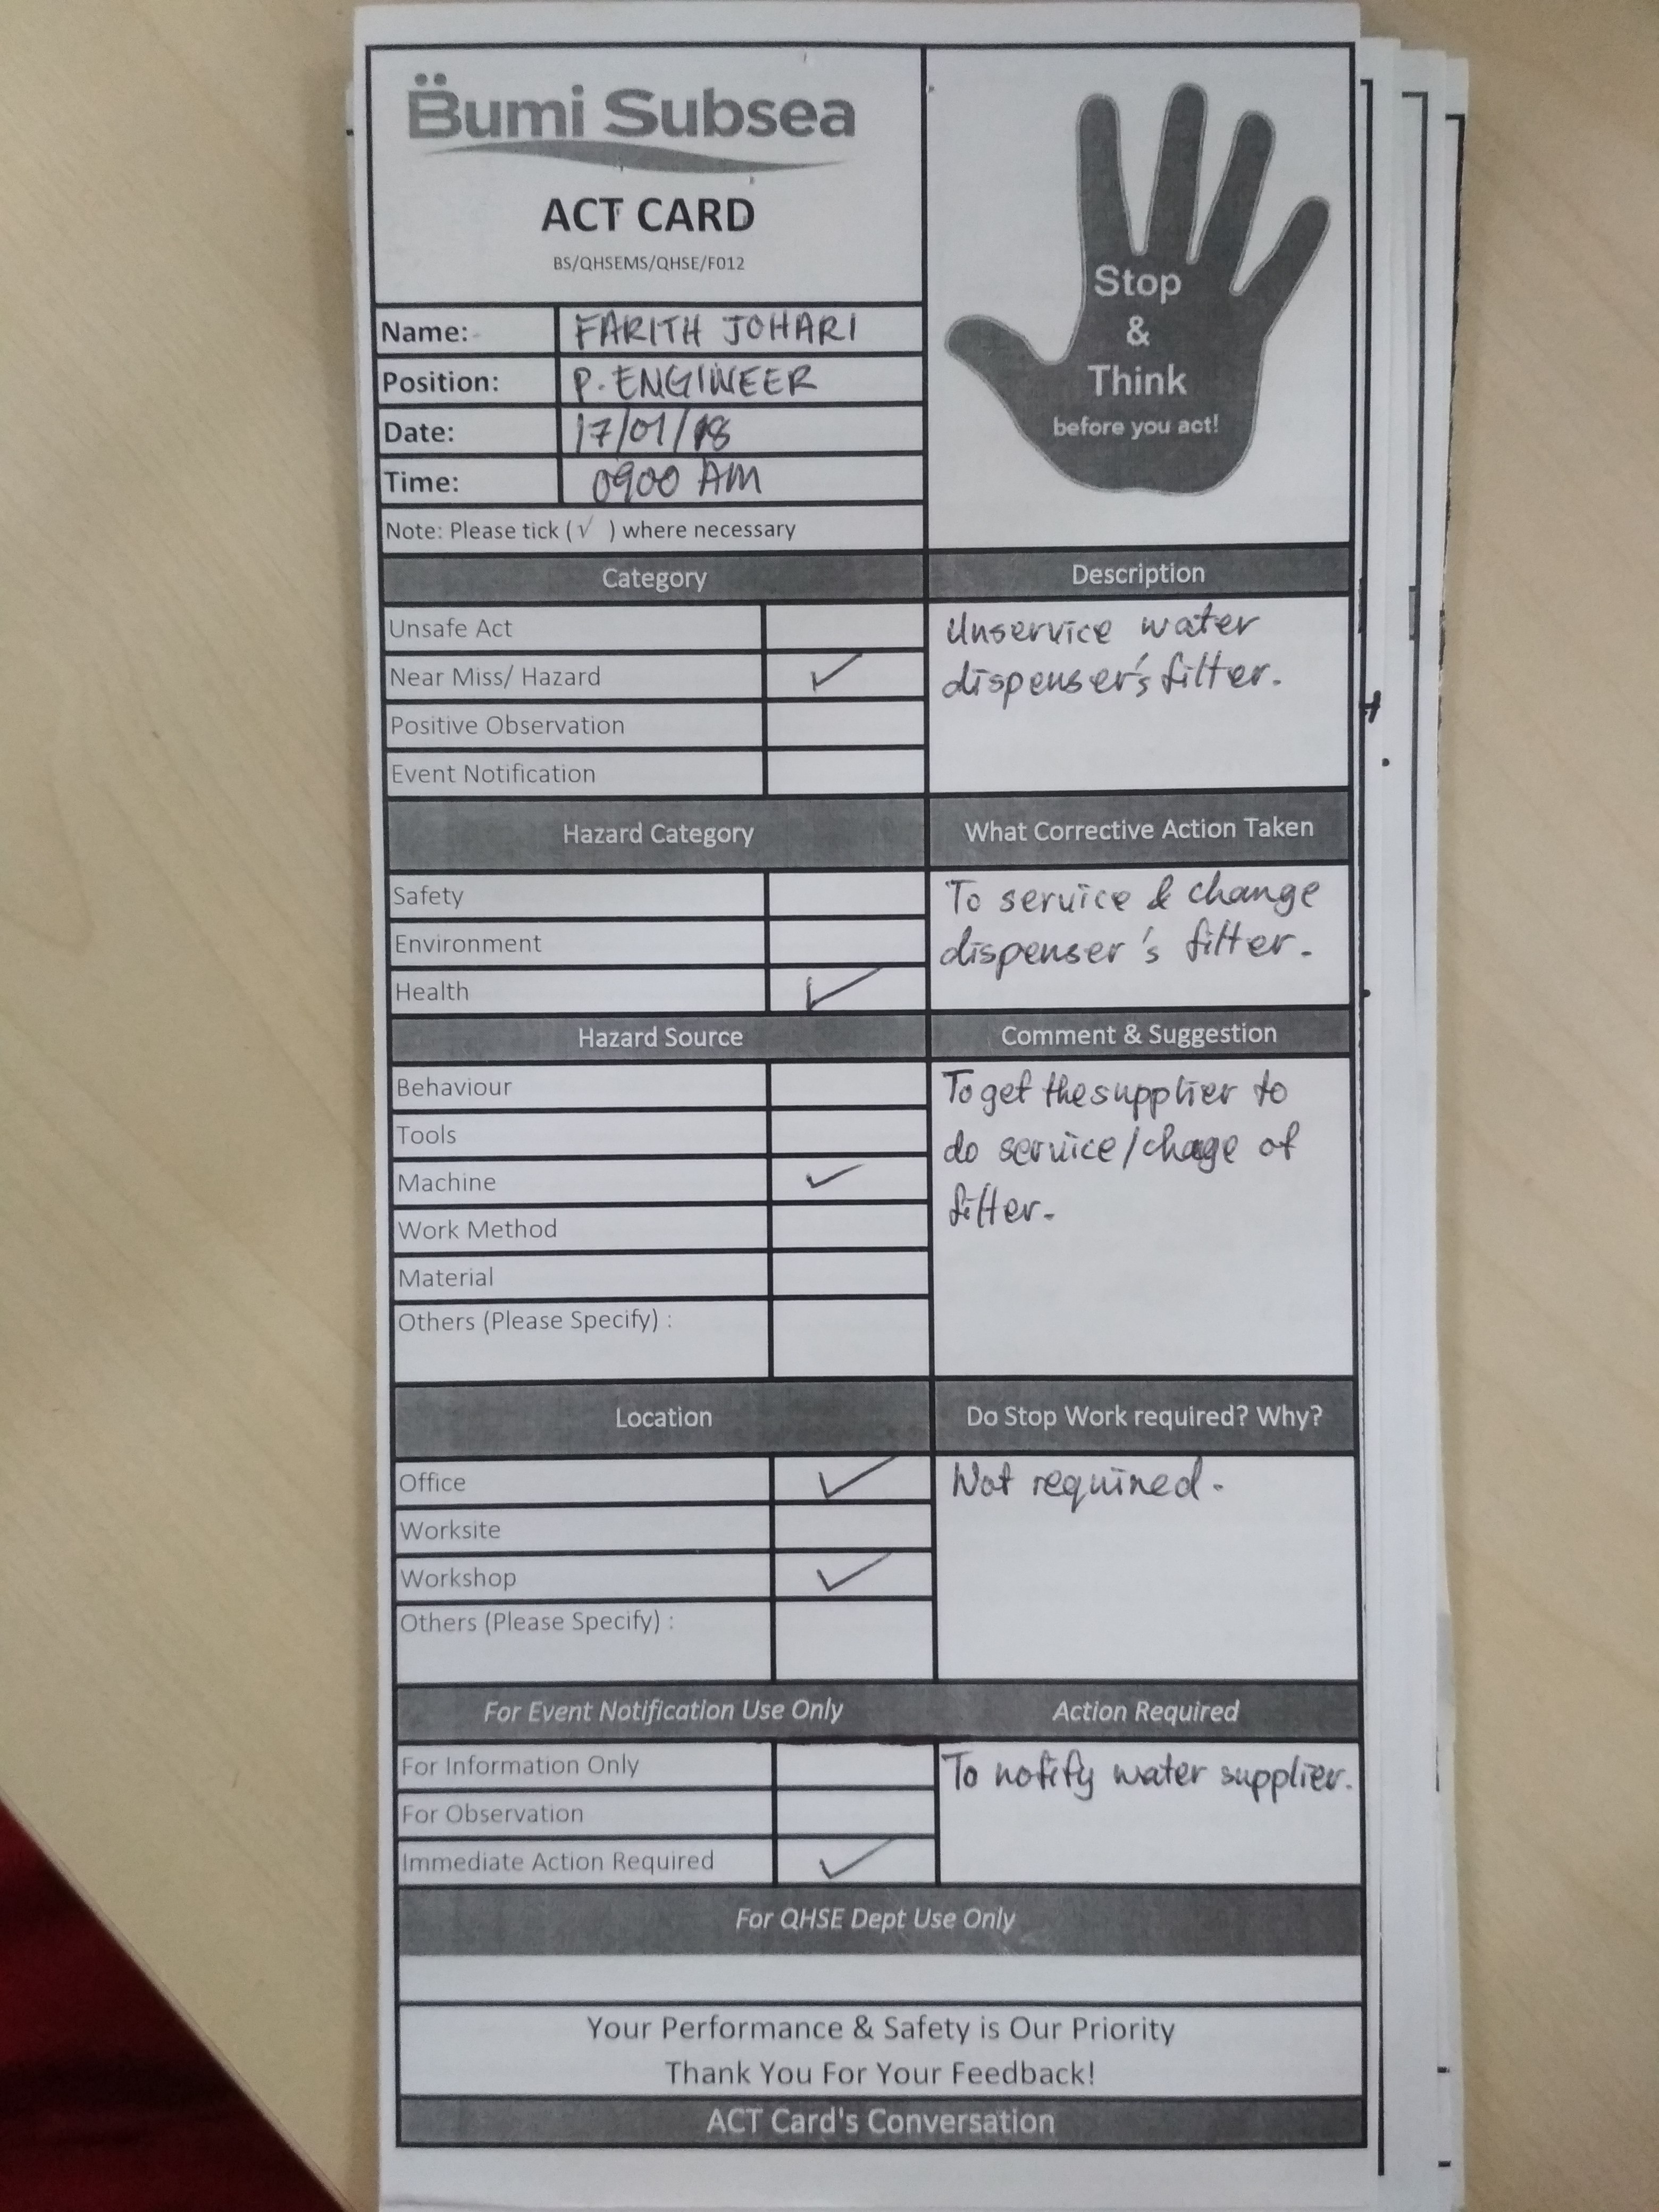 Bumi Subsea
ACT CARD
BS/QHSEMS/QHSE/F012
Stop
&
Think
before you act!
Name: FARITH JOHARI
Position: P. ENGINEER
Date: 17/01/18
Time: 0900 AM
Note: Please tick (√ ) where necessary
Category
Unsafe Act
Near Miss/ Hazard ✓
Positive Observation
Event Notification
Description
Unservice water
dispenser's filter.
Hazard Category
Safety
Environment
Health ✓
What Corrective Action Taken
To service & change
dispenser's filter.
Hazard Source
Behaviour
Tools
Machine ✓
Work Method
Material
Others (Please Specify) :
Comment & Suggestion
To get the supplier to
do service/chage of
filter.
Location
Office ✓
Worksite
Workshop ✓
Others (Please Specify) :
Do Stop Work required? Why?
Not required.
For Event Notification Use Only
For Information Only
For Observation
Immediate Action Required ✓
Action Required
To notify water supplier.
For QHSE Dept Use Only
Your Performance & Safety is Our Priority
Thank You For Your Feedback!
ACT Card's Conversation